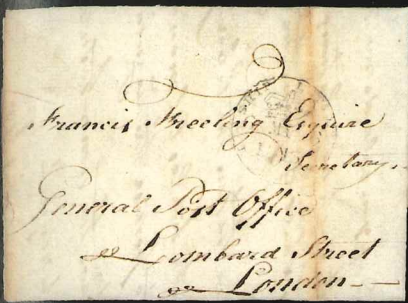 Francis Freeling Esquire
Secretary
General Post Office
Lombard Street
London